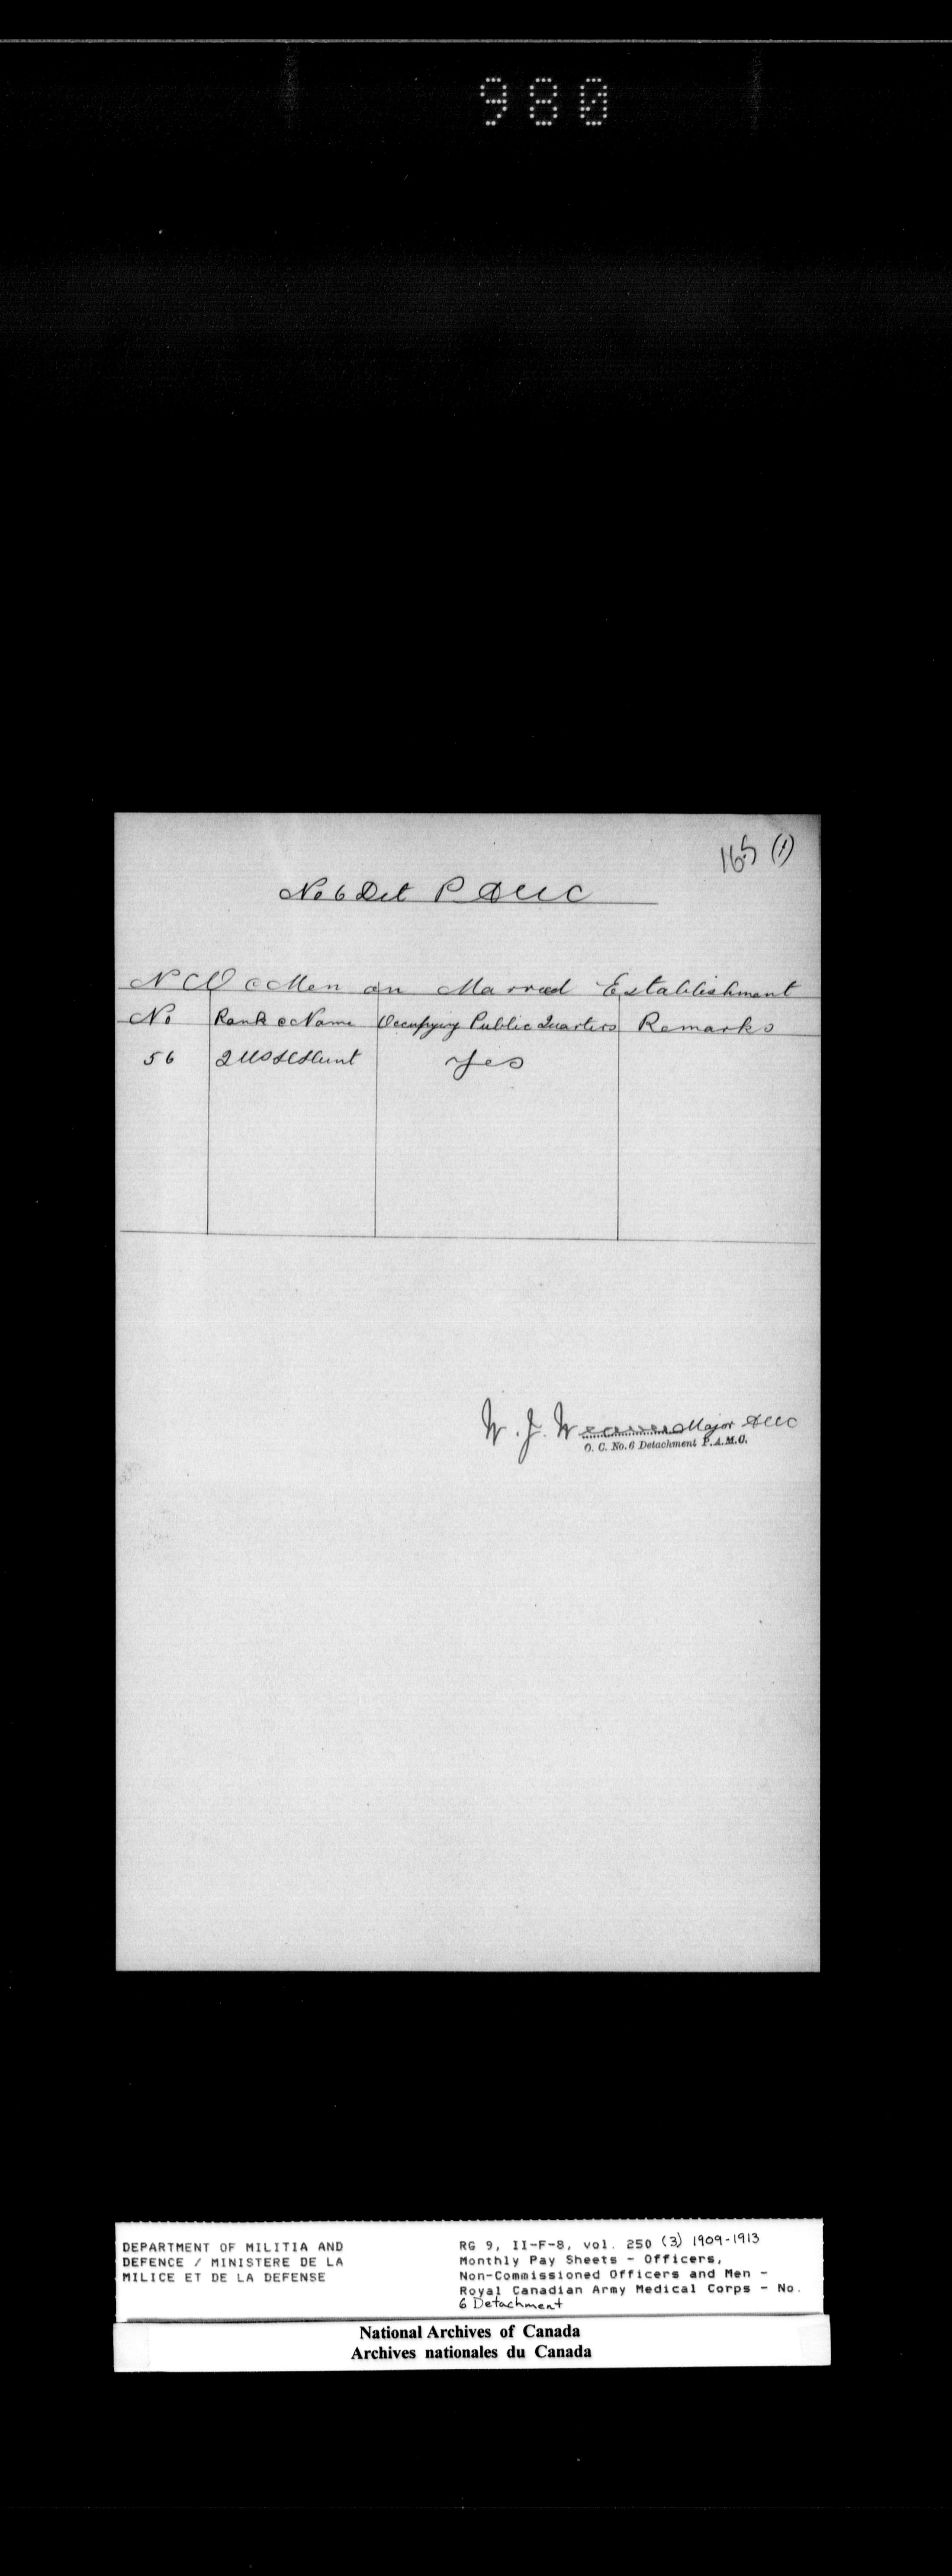 980
165 (1)
No 6 Det P AMC
N C O & Men on Married Establishment
No Rank & Name Occupying Public Quarters Remarks
56 QMS Hunt Yes
W. J. Major AMC
O. C. No. 6 Detachment P.A.M.C.
DEPARTMENT OF MILITIA AND
DEFENCE / MINISTERE DE LA
MILICE ET DE LA DEFENSE
RG 9, II-F-8, vol. 250 (3) 1909-1913
Monthly Pay Sheets - Officers,
Non-Commissioned Officers and Men -
Royal Canadian Army Medical Corps - No.
6 Detachment
National Archives of Canada
Archives nationales du Canada